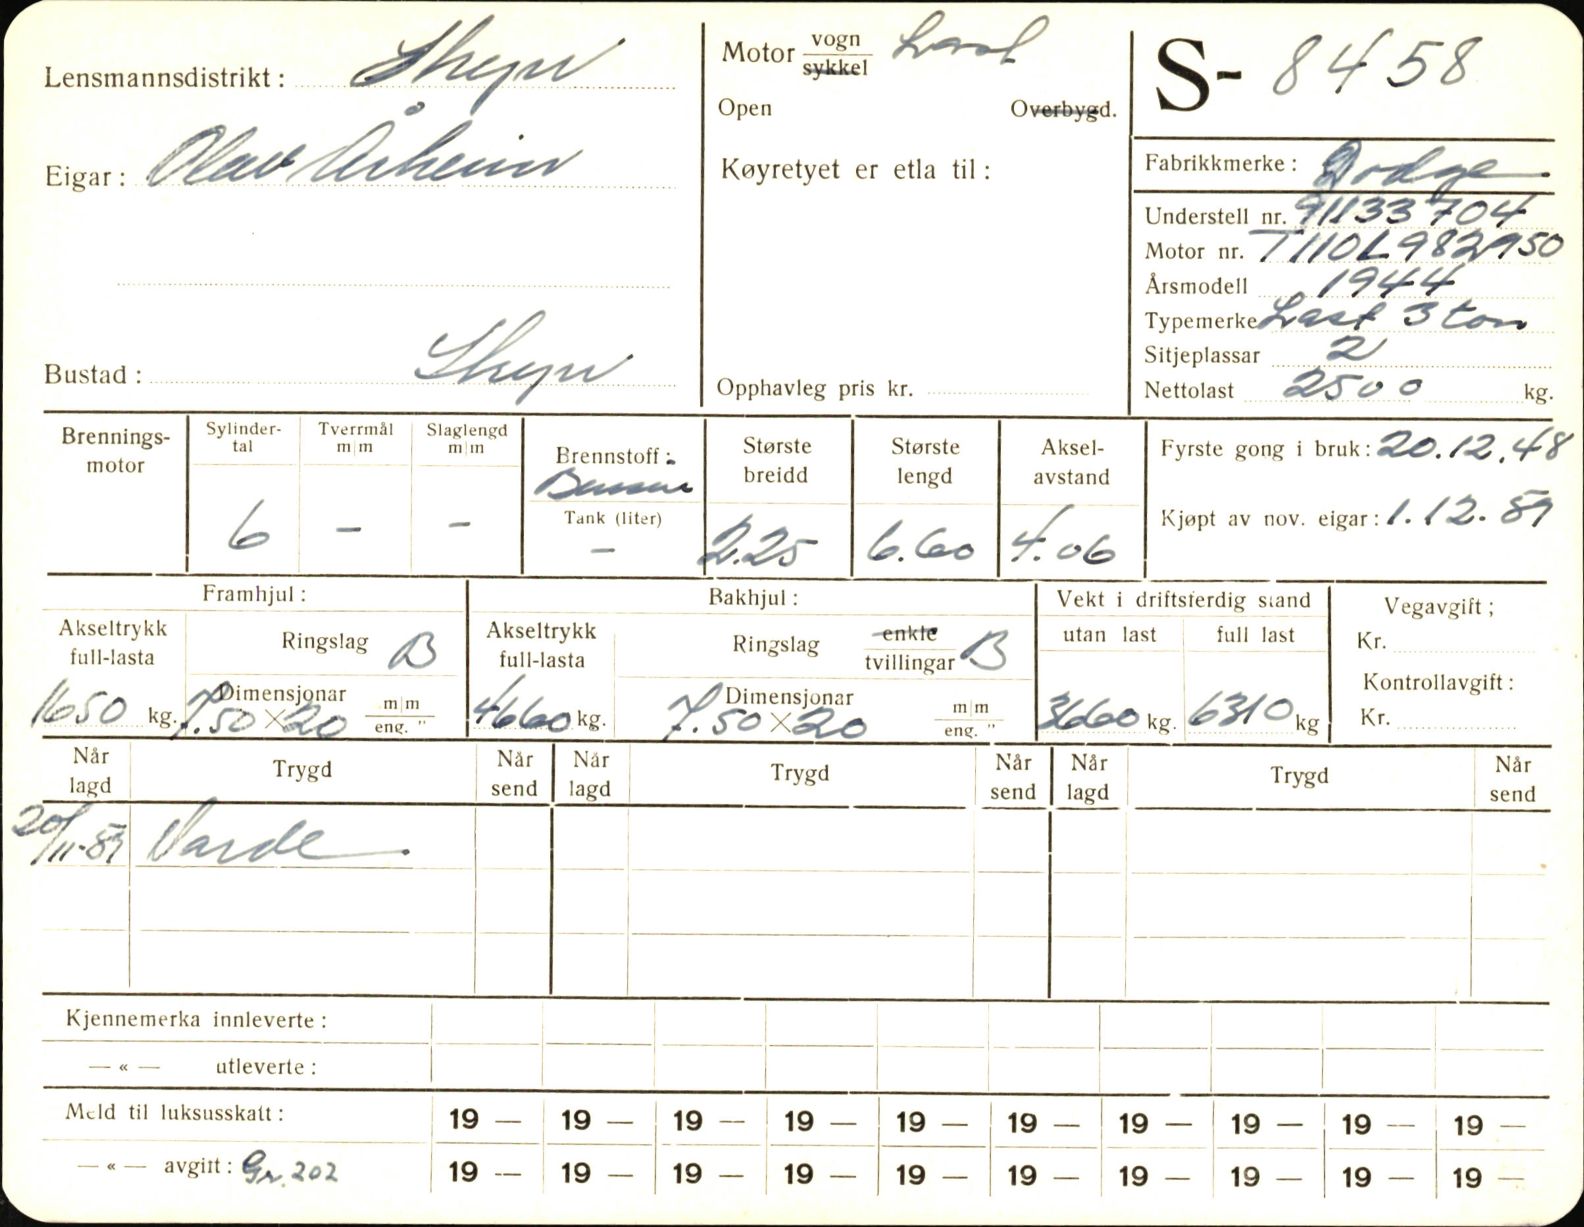 Lensmannsdistrikt: Stryn
Eigar: Olav Årheim
Bustad: Stryn
Motor vogn sykkel Last
Open Overbygd.
Køyretyet er etla til:
Opphavleg pris kr.
S- 8458
Fabrikkmerke: Dodge
Understell nr. 91133704
Motor nr. T110L982950
Årsmodell 1944
Typemerke Last 3 ton
Sitjeplassar 2
Nettolast 2500 kg.
Brennings-
motor
Sylinder-
tal
6
Tverrmål
m|m
—
Slaglengd
m|m
—
Brennstoff:
Bensin
Tank (liter)
—
Største
breidd
2.25
Største
lengd
6.60
Aksel-
avstand
4.06
Fyrste gong i bruk: 20.12.48
Kjøpt av nov. eigar: 1.12.51
Framhjul:
Akseltrykk
full-lasta
1650 kg.
Ringslag B
Dimensjonar
7.50×20 m|m eng. "
Bakhjul:
Akseltrykk
full-lasta
4660 kg.
Ringslag enkle tvillingar B
Dimensjonar
7.50×20 m|m eng. "
Vekt i driftsferdig stand
utan last
3660 kg.
full last
6310 kg
Vegavgift;
Kr.
Kontrollavgift:
Kr.
Når lagd Trygd Når send Når lagd Trygd Når send Når lagd Trygd Når send
20/11-51 Varde
Kjennemerka innleverte:
— « — utleverte:
Meld til luksusskatt: 19 — 19 — 19 — 19 — 19 — 19 — 19 — 19 — 19 — 19 —
— « — avgift: Gr. 202 19 — 19 — 19 — 19 — 19 — 19 — 19 — 19 — 19 — 19 —